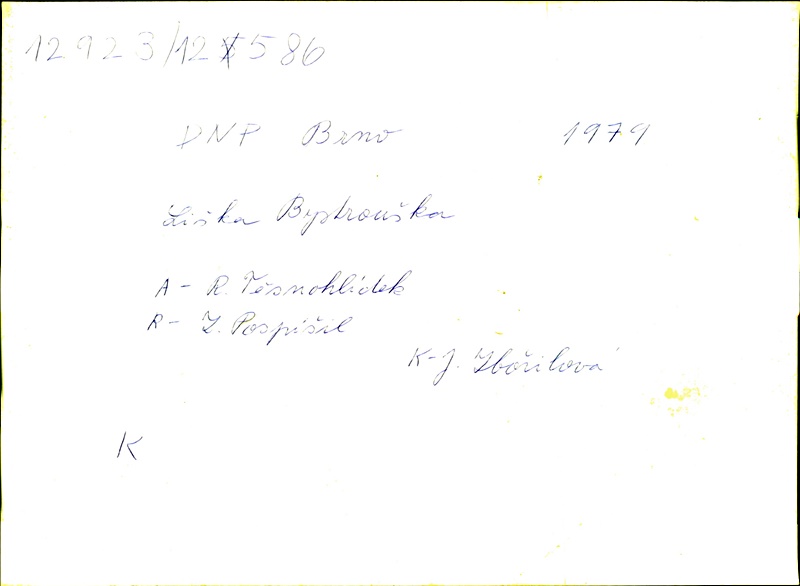 12923/12586
DNP Brno 1979
Liška Bystrouška
A - R. Těsnohlídek
R - Z. Pospíšil
K - J. Zbořilová
K